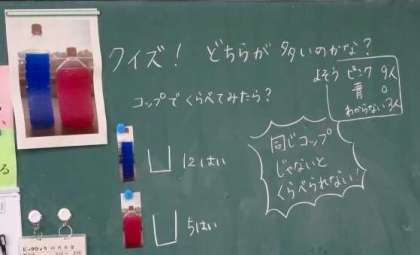 クイズ! どちらが多いのかな?
よそう ピンク 9人
青 0
わからない 3人
コップでくらべてみたら?
12はい
5はい
同じコップ
じゃないと
くらべられない!
る